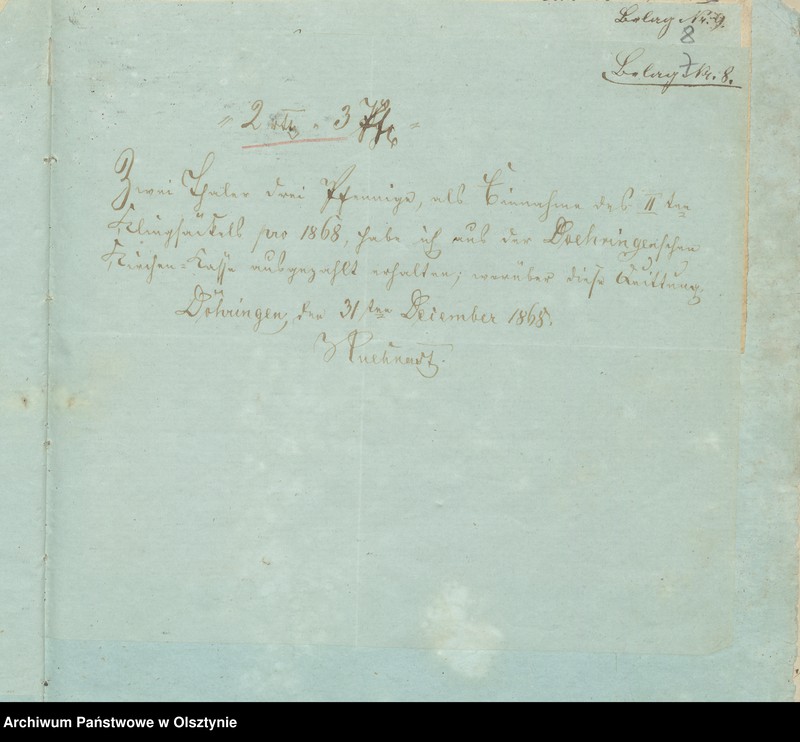 Belag Nr. 9.
8
Belag Nr. 8.
7
„ 2 rtl „ 3 Pf „
Zwei Thaler drei Pfennige, als Einnahme des II ten
Klingsäckels pro 1868, habe ich aus der Doehringenschen
Kirchen-Kasse ausgezahlt erhalten; worüber diese Quittung.
Döhringen, den 31 ten December 1868.
Archiwum Państwowe w Olsztynie